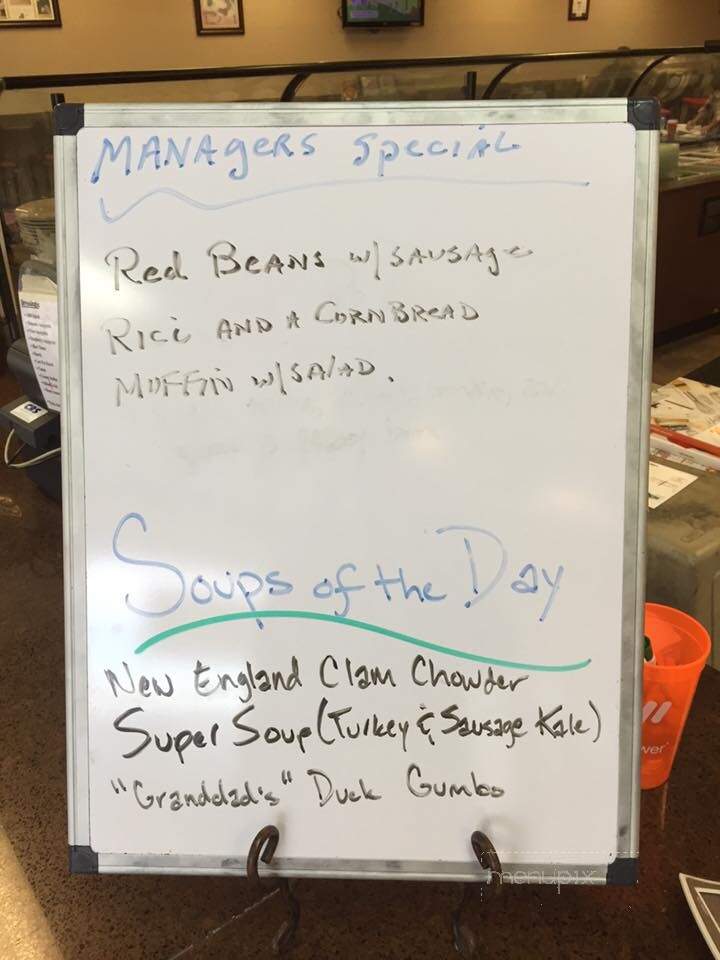 MANAgeRS Special
Red BeANS w/ SAUSAge
Rice AND A CORNBReAD
MUFFIN w/SAlAD.
Soups of the Day
New England Clam Chowder
Super Soup (Turkey & Sausage Kale)
"Granddad's" Duck Gumbo
menupix